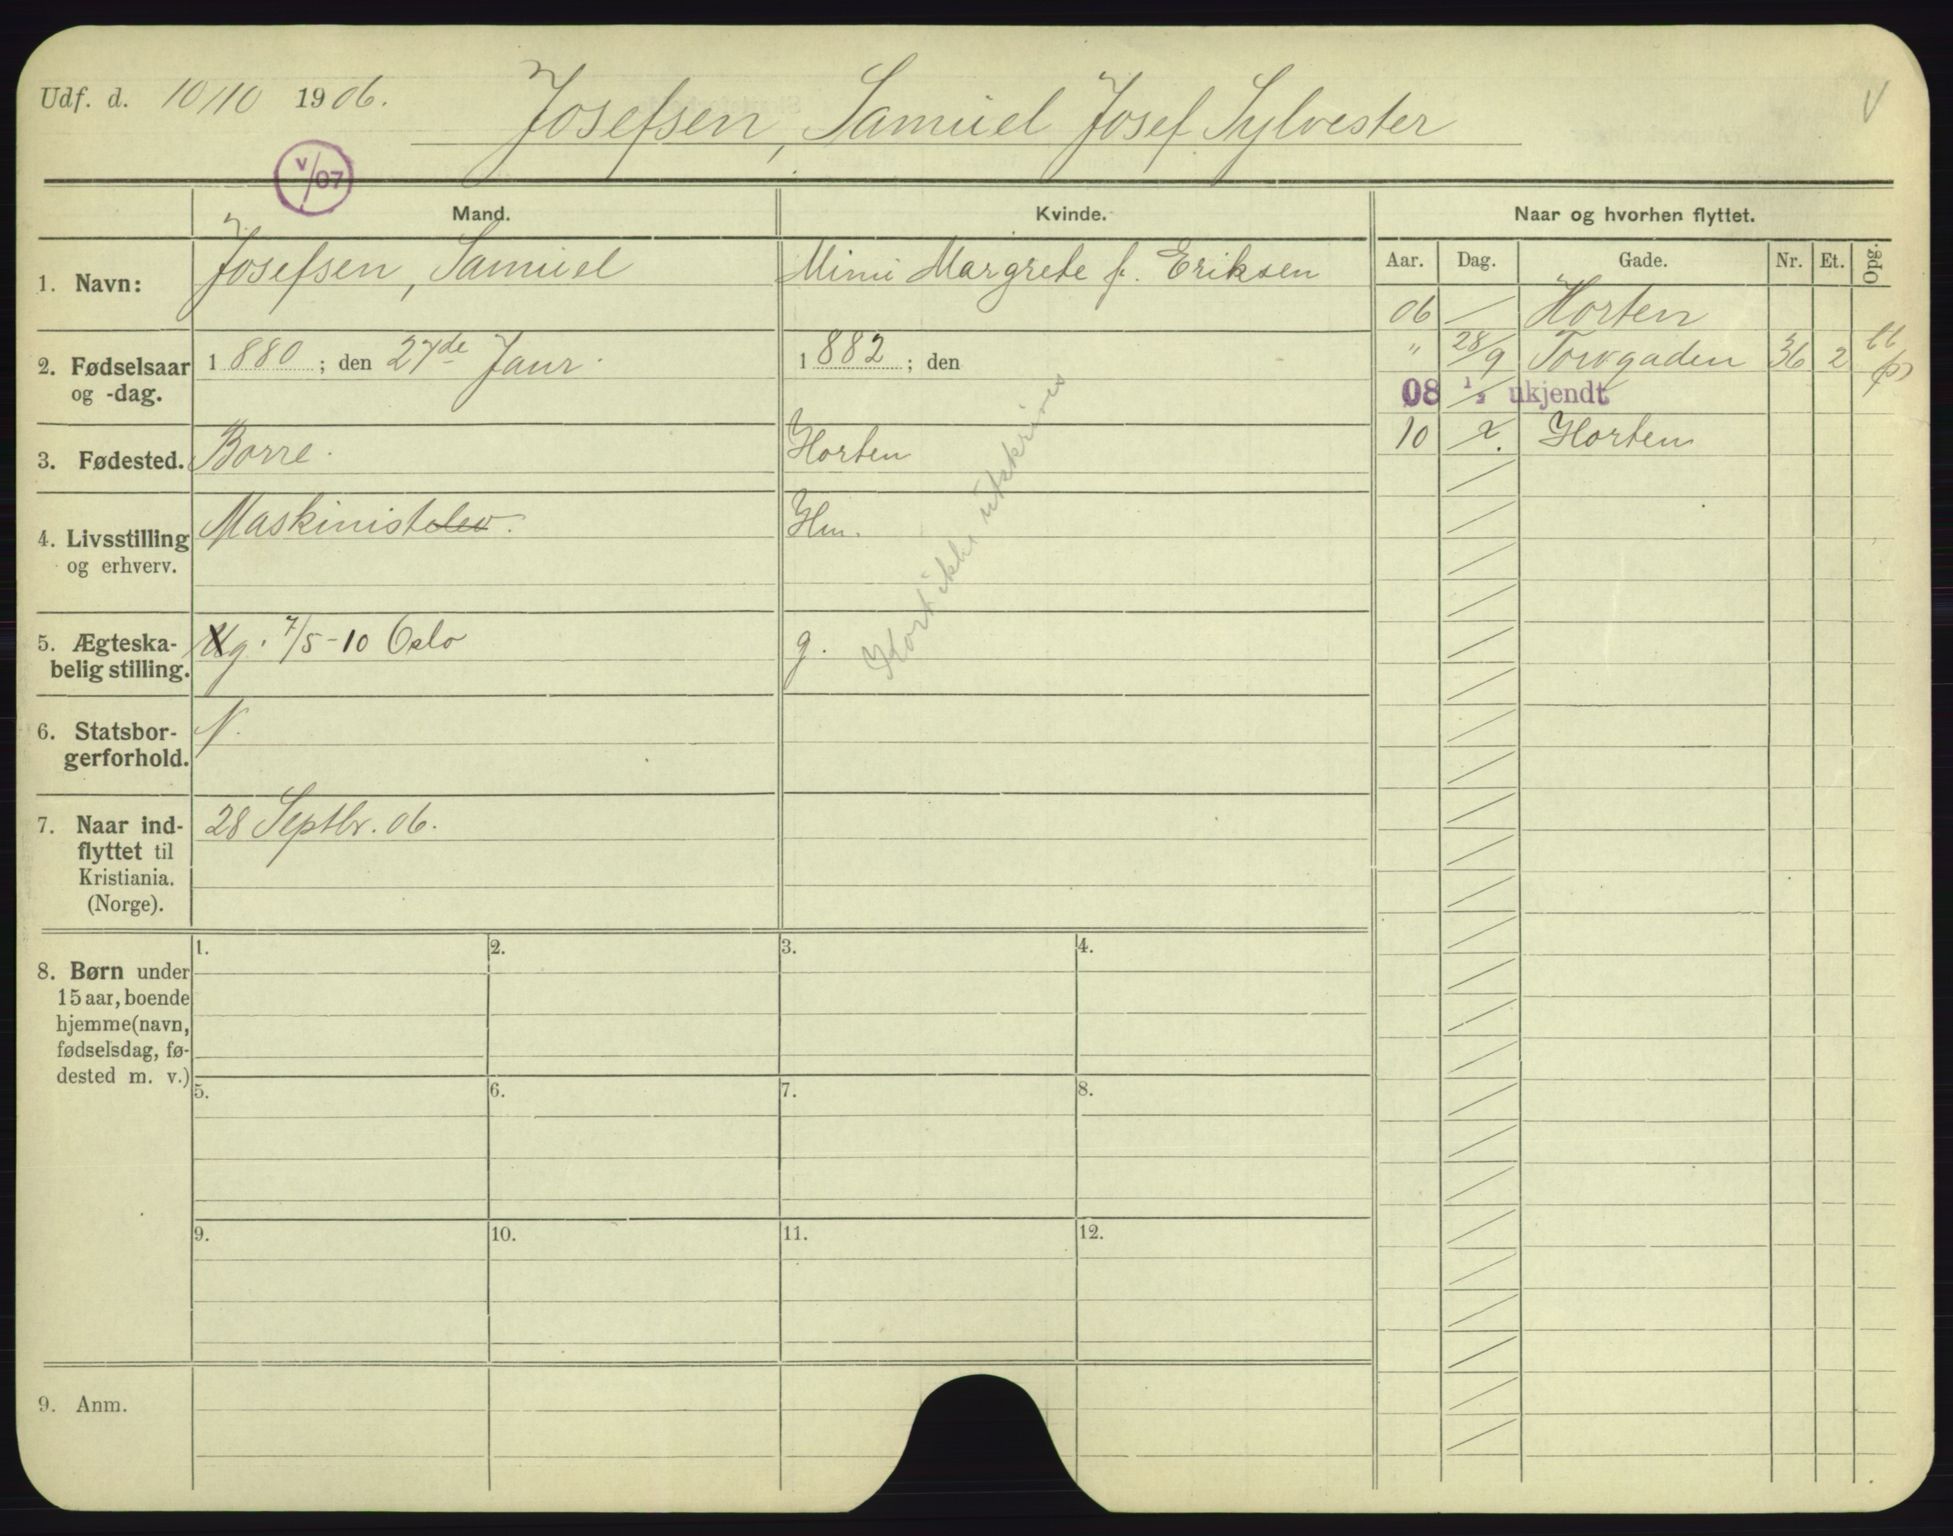 Udf. d. 10/10 1906.
Josefsen, Samuel Josef Sylvester
V
V/07
Mand.
Kvinde.
Naar og hvorhen flyttet.
Aar. Dag. Gade. Nr. Et. Opg.
1. Navn:
Josefsen, Samuel
Mimi Margrete f. Eriksen
06 Horten
" 28/9 Torvgaden 36 2
08 1/2 ukjendt
10 x. Horten
2. Fødselsaar
og -dag.
1880; den 27de Janr.
1882; den
3. Fødested.
Borre.
Horten
4. Livsstilling
og erhverv.
Maskinistelev.
Hm.
Kort ikke utskrives
5. Ægteska-
belig stilling.
Ug. 7/5-10 Oslo
g.
6. Statsbor-
gerforhold.
N.
7. Naar ind-
flyttet til
Kristiania.
(Norge).
28 Septbr. 06.
8. Børn under
15 aar, boende
hjemme (navn,
fødselsdag, fø-
dested m. v.)
1. 2. 3. 4.
5. 6. 7. 8.
9. 10. 11. 12.
9. Anm.